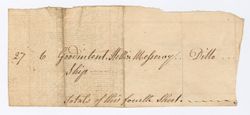 27 6 Goodintent Ditto
Ship
Totals of this fourth Sheet